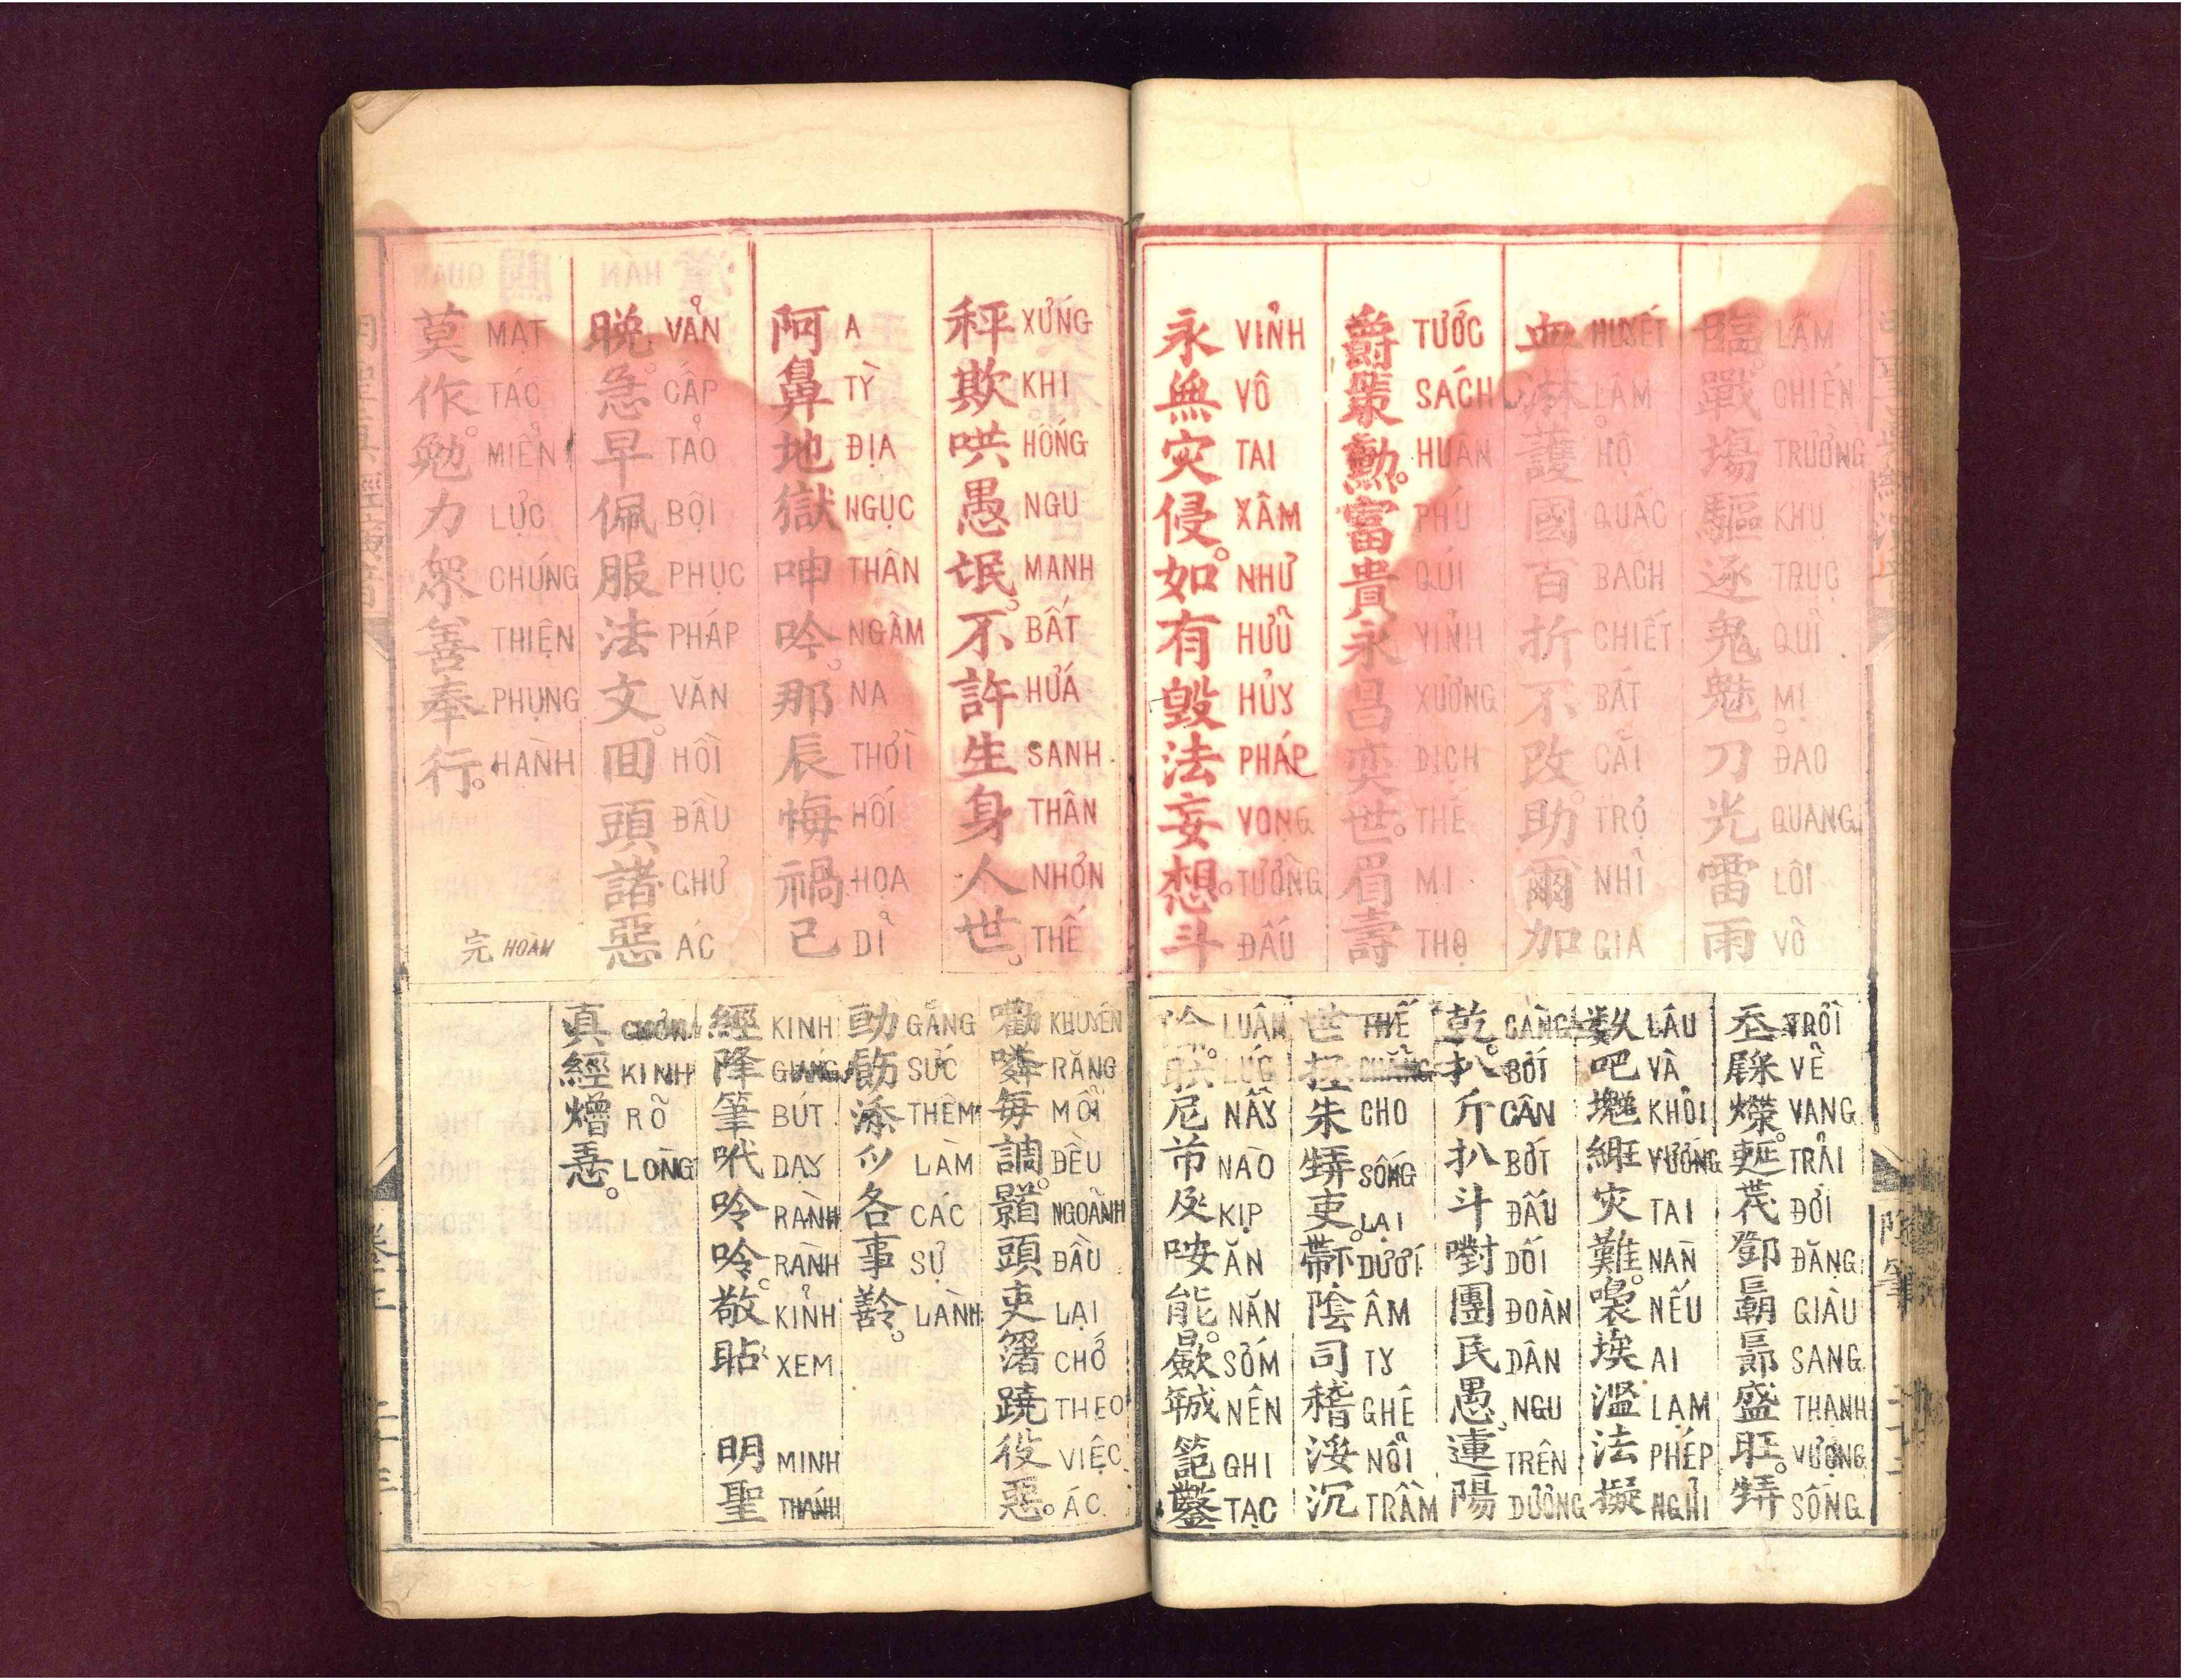 臨 LÂM 戰 CHIẾN 場 TRƯỜNG 驅 KHU 逐 TRỤC 鬼 QUỈ 魅 MỊ 刀 ĐAO 光 QUANG 雷 LÔI 雨 VÕ
血 HUYẾT 淋 LÂM 護 HỘ 國 QUẤC 百 BÁCH 折 CHIẾT 不 BẤT 改 CẢI 助 TRỢ 爾 NHĨ 加 GIA
爵 TƯỚC 策 SÁCH 勳 HUÂN 富 PHÚ 貴 QÚI 永 VỈNH 昌 XƯƠNG 奕 DỊCH 世 THẾ 眉 MI 壽 THỌ
永 VỈNH 無 VÔ 灾 TAI 侵 XÂM 如 NHƯ 有 HỮU 毀 HỦY 法 PHÁP 妄 VỌNG 想 TƯỞNG 斗 ĐẤU
秤 XỨNG 欺 KHI 哄 HỐNG 愚 NGU 氓 MANH 不 BẤT 許 HỨA 生 SANH 身 THÂN 人 NHƠN 世 THẾ
阿 A 鼻 TỲ 地 ĐỊA 獄 NGỤC 呻 THÂN 吟 NGÂM 那 NA 辰 THỜI 悔 HỐI 禍 HỌA 已 DĨ
晚 VẢN 急 CẤP 早 TẢO 佩 BỘI 服 PHỤC 法 PHÁP 文 VĂN 囬 HỒI 頭 ĐẦU 諸 CHƯ 惡 ÁC
莫 MẠT 作 TÁC 勉 MIỂN 力 LỰC 衆 CHÚNG 善 THIỆN 奉 PHỤNG 行 HÀNH 完 HOÀN
TRỜI VẺ VANG TRẢI ĐỜI 鄧 ĐẶNG GIÀU SANG 盛 THẠNH 旺 VƯỢNG SỐNG
数 LÂU 吧 VÀ KHỎI VƯỚNG 灾 TAI 難 NÀN NẾU 埃 AI 濫 LẠM 法 PHÉP 擬 NGHỈ
乾 CÀNG 扒 BỚT 斤 CÂN 扒 BỚT 斗 ĐẤU 對 DỐI 團 ĐOÀN 民 DÂN 愚 NGU 連 TRÊN 陽 DƯƠNG
世 THẾ CHẲNG 朱 CHO SỐNG 吏 LẠI DƯỚI 陰 ÂM 司 TY 稽 GHÊ NỖI 沉 TRẦM
LUÂN LÚC 尼 NẦY NÀO KỊP ĂN 能 NĂN SỚM NÊN GHI 鑿 TẠC
勸 KHUYÊN RẰNG 每 MỖI 調 ĐỀU NGOẢNH 頭 ĐẦU 吏 LẠI CHỚ THEO 役 VIỆC 惡 ÁC
GẮNG 飭 SỨC 添 THÊM LÀM 各 CÁC 事 SỰ LÀNH
經 KINH 降 GIÁNG 筆 BÚT DẠY RÀNH RÀNH 敬 KỈNH XEM 明 MINH 聖 THÁNH
真 CHƠN 經 KINH RÕ LÒNG